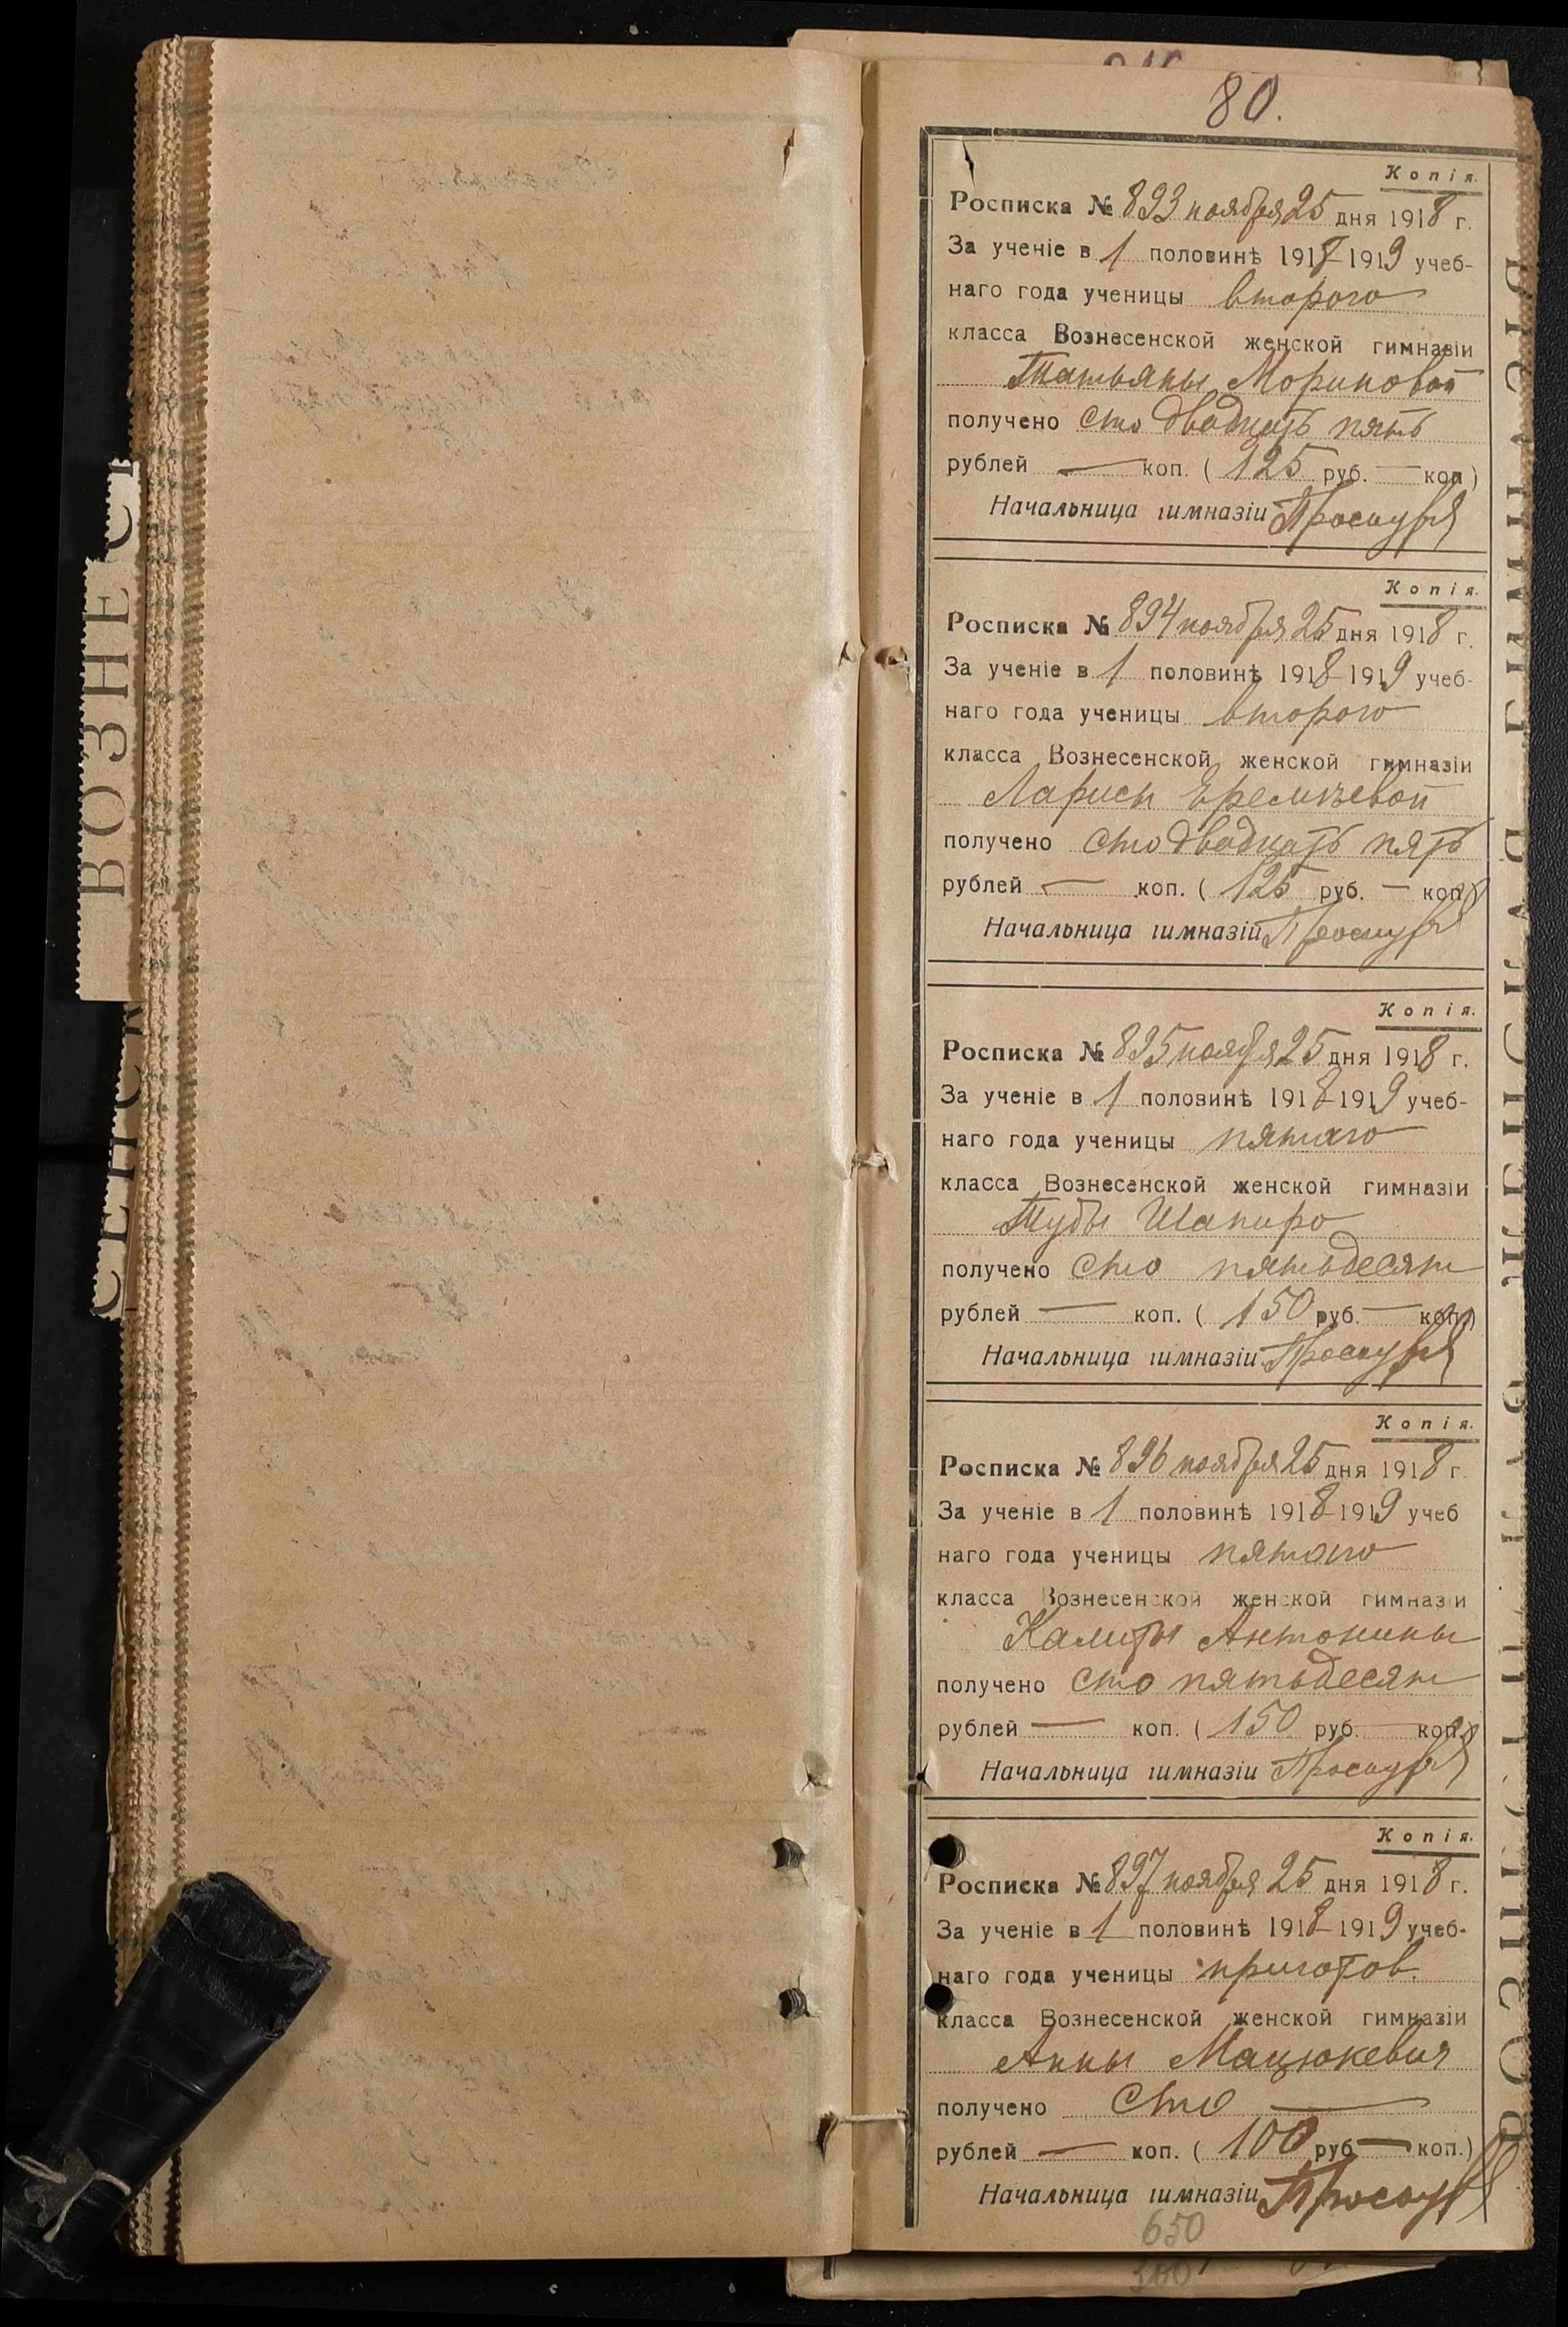 80.
Копія.
Росписка № 893 ноября 25 дня 1918 г.
За ученіе в 1 половинѣ 1918-1919 учеб-
наго года ученицы второго
класса Вознесенской женской гимназіи
Татьяны Мориновой
получено сто двадцать пять
рублей — коп. ( 125 руб. — коп)
Начальница гимназіи
Копія.
Росписка № 894 ноября 25 дня 1918 г.
За ученіе в 1 половинѣ 1918-1919 учеб-
наго года ученицы второго
класса Вознесенской женской гимназіи
Ларисы Еремѣевой
получено сто двадцать пять
рублей — коп. ( 125 руб. — коп)
Начальница гимназіи
Копія.
Росписка № 895 ноября 25 дня 1918 г.
За ученіе в 1 половинѣ 1918-1919 учеб-
наго года ученицы пятаго
класса Вознесенской женской гимназіи
Тубы Шапиро
получено сто пятьдесят
рублей — коп. ( 150 руб. — коп.)
Начальница гимназіи
Копія.
Росписка № 896 ноября 25 дня 1918 г
За ученіе в 1 половинѣ 1918-1919 учеб
наго года ученицы пятаго
класса Вознесенской женской гимназіи
Калиты Антонины
получено сто пятьдесят
рублей — коп. ( 150 руб. — коп.)
Начальница гимназіи
Копія.
Росписка № 897 ноября 25 дня 1918 г.
За ученіе в 1 половинѣ 1918-1919 учеб-
наго года ученицы приготов.
класса Вознесенской женской гимназіи
Анны Мацюкевич
получено сто —
рублей — коп. ( 100 руб — коп.)
Начальница гимназіи
650
300
ВОЗНЕС